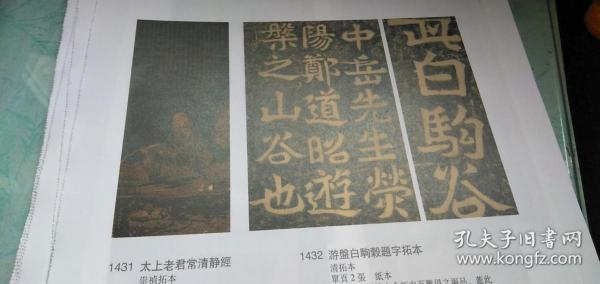 中岳先生熒
陽鄭道昭遊
槃之山谷也
此白駒谷
1431 太上老君常清静經
崇禎拓本
1432 游盤白駒穀題字拓本
清拓本
單頁2張 紙本
孔夫子旧书网